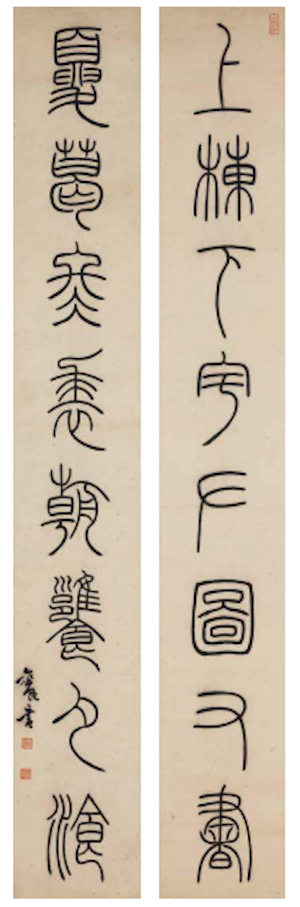 上棟下宇左圖右書
夏葛冬裘朝饔夕湌